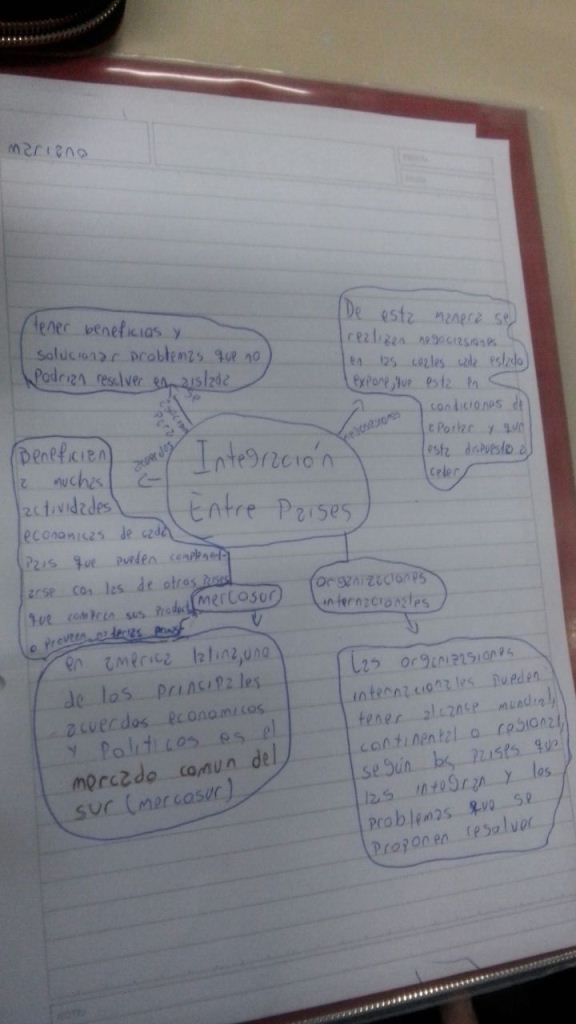 mariana
tener beneficios y
solucionar problemas que no
podrian resolver en aislada
se
asocian
para
De esta manera se
realizan negociasiones
en las cuales cada estado
expone, que esta en
condiciones de
aportar y que
esta dispuesto a
ceder
negociasiones
acuerdos
Integración
Entre Paises
Benefician
a muchas
actividades
economicas de cada
pais que pueden complement-
arse con las de otros paises
que compren sus product
o proveen materias primas
mercosur
organizaciones
internacionales
en america latina, uno
de los principales
acuerdos economicos
y politicos es el
mercado comun del
sur (mercosur)
Las organizasiones
internacionales pueden
tener alcance mundial,
continental o regional,
según los paises que
las integran y los
problemas que se
proponen resolver
NOTA: